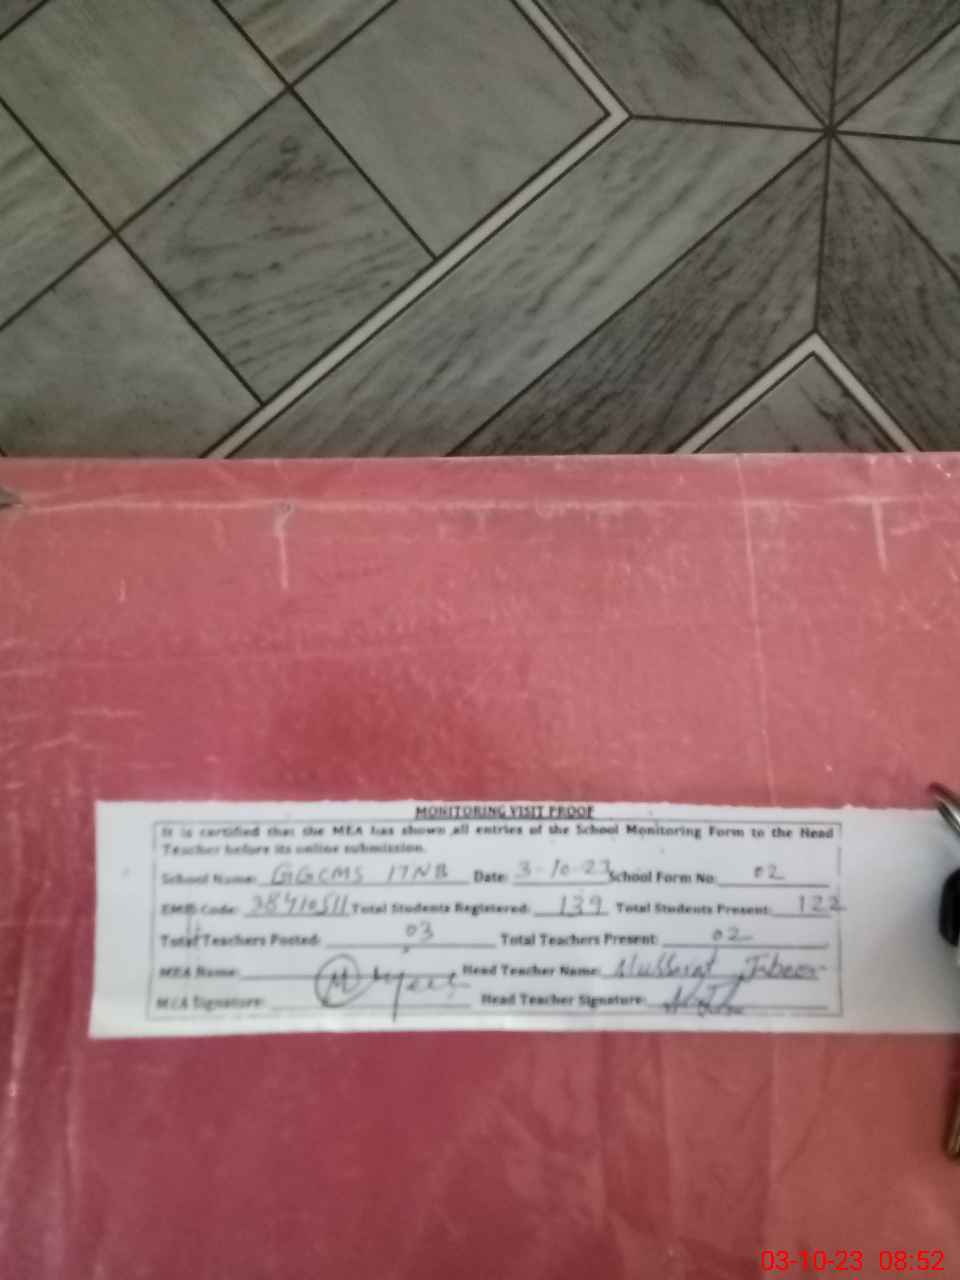 MONITORING VISIT PROOF
It is certified that the MEA has shown all entries of the School Monitoring Form to the Head
Teacher before its online submission.
School Name: GGCMS 17NB Date: 3-10-23 School Form No: 02
EMIS Code: 38410511 Total Students Registered: 139 Total Students Present: 122
Total Teachers Posted: 03 Total Teachers Present: 02
MEA Name: Head Teacher Name:
MEA Signature: Head Teacher Signature:
03-10-23 08:52